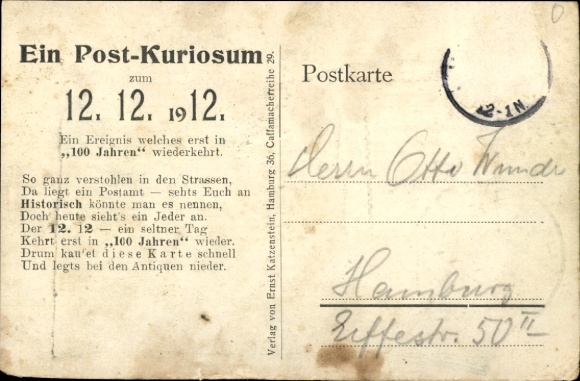 Ein Post-Kuriosum
zum
12. 12. 1912.
Ein Ereignis welches erst in
„100 Jahren“ wiederkehrt.
So ganz verstohlen in den Strassen,
Da liegt ein Postamt — sehts Euch an
Historisch könnte man es nennen,
Doch heute sieht's ein Jeder an.
Der 12. 12 — ein seltner Tag
Kehrt erst in „100 Jahren“ wieder.
Drum kaufet diese Karte schnell
Und legts bei den Antiquen nieder.
Verlag von Ernst Katzenstein, Hamburg 36, Caffamacherreihe 29.
Postkarte
12-1N.
Herrn Otto Wunde
Hamburg
Eiffestr. 50 II